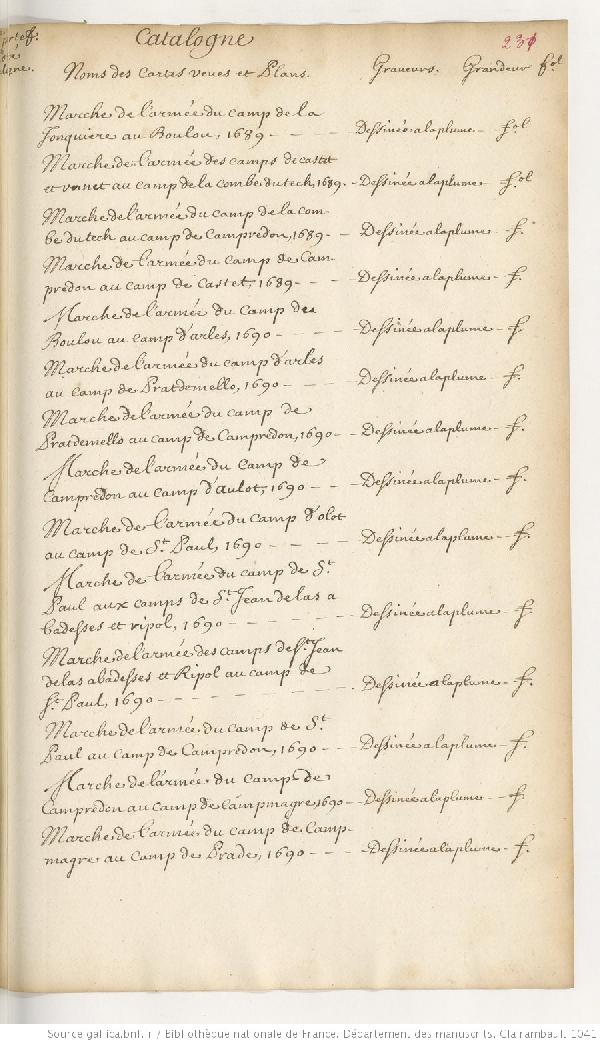 Catalogne
231
Noms des Cartes veues et Plans. Graveurs. Grandeur fol
Marche de l'armée du camp de la
Jonquiere au Boulou, 1689 - - - - Dessinée a la plume - fol
Marche de l'armée des camps de castet
et vernet au camp de la combe du tech, 1689. - Dessinée a la plume - fol
Marche de l'armée du camp de la com-
be du tech au camp de Campredon, 1689 - - Dessinée a la plume - f.
Marche de l'armée du camp de Cam-
predon au camp de Castet, 1689 - - - Dessinée a la plume - f.
Marche de l'armée du camp des
Boulou au camp d'arles, 1690 - - - - Dessinée a la plume - f.
Marche de l'armée du camp d'arles
au camp de Pratdemello, 1690 - - - - Dessinée a la plume - f.
Marche de l'armée du camp de
Pratdemello au camp de Campredon, 1690 - - Dessinée a la plume - f.
Marche de l'armée du camp de
Campredon au camp d'aulot, 1690 - - - Dessinée a la plume - f.
Marche de l'armée du camp d'olot
au camp de St. Paul, 1690 - - - - - Dessinée a la plume - f.
Marche de l'armée du camp de St.
Paul aux camps de St. Jean de las a
badesses et ripol, 1690 - - - - - - Dessinée a la plume - f.
Marche de l'armée des camps de St. Jean
de las abadesses et Ripol au camp de
St. Paul, 1690 - - - - - - - - Dessinée a la plume - f.
Marche de l'armée du camp de St.
Paul au camp de Campredon, 1690 - - - Dessinée a la plume - f.
Marche de l'armée du camp de
Campredon au camp de campmagre 1690 - - Dessinée a la plume - f.
Marche de l'armée du camp de Camp-
magre au camp de Prade, 1690 - - - - Dessinée a la plume - f.
Source gallica.bnf.fr / Bibliothèque nationale de France. Département des manuscrits. Clairambault 1041